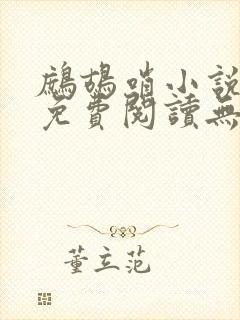 鷓鴣哨小說
免費閱讀無
董立范